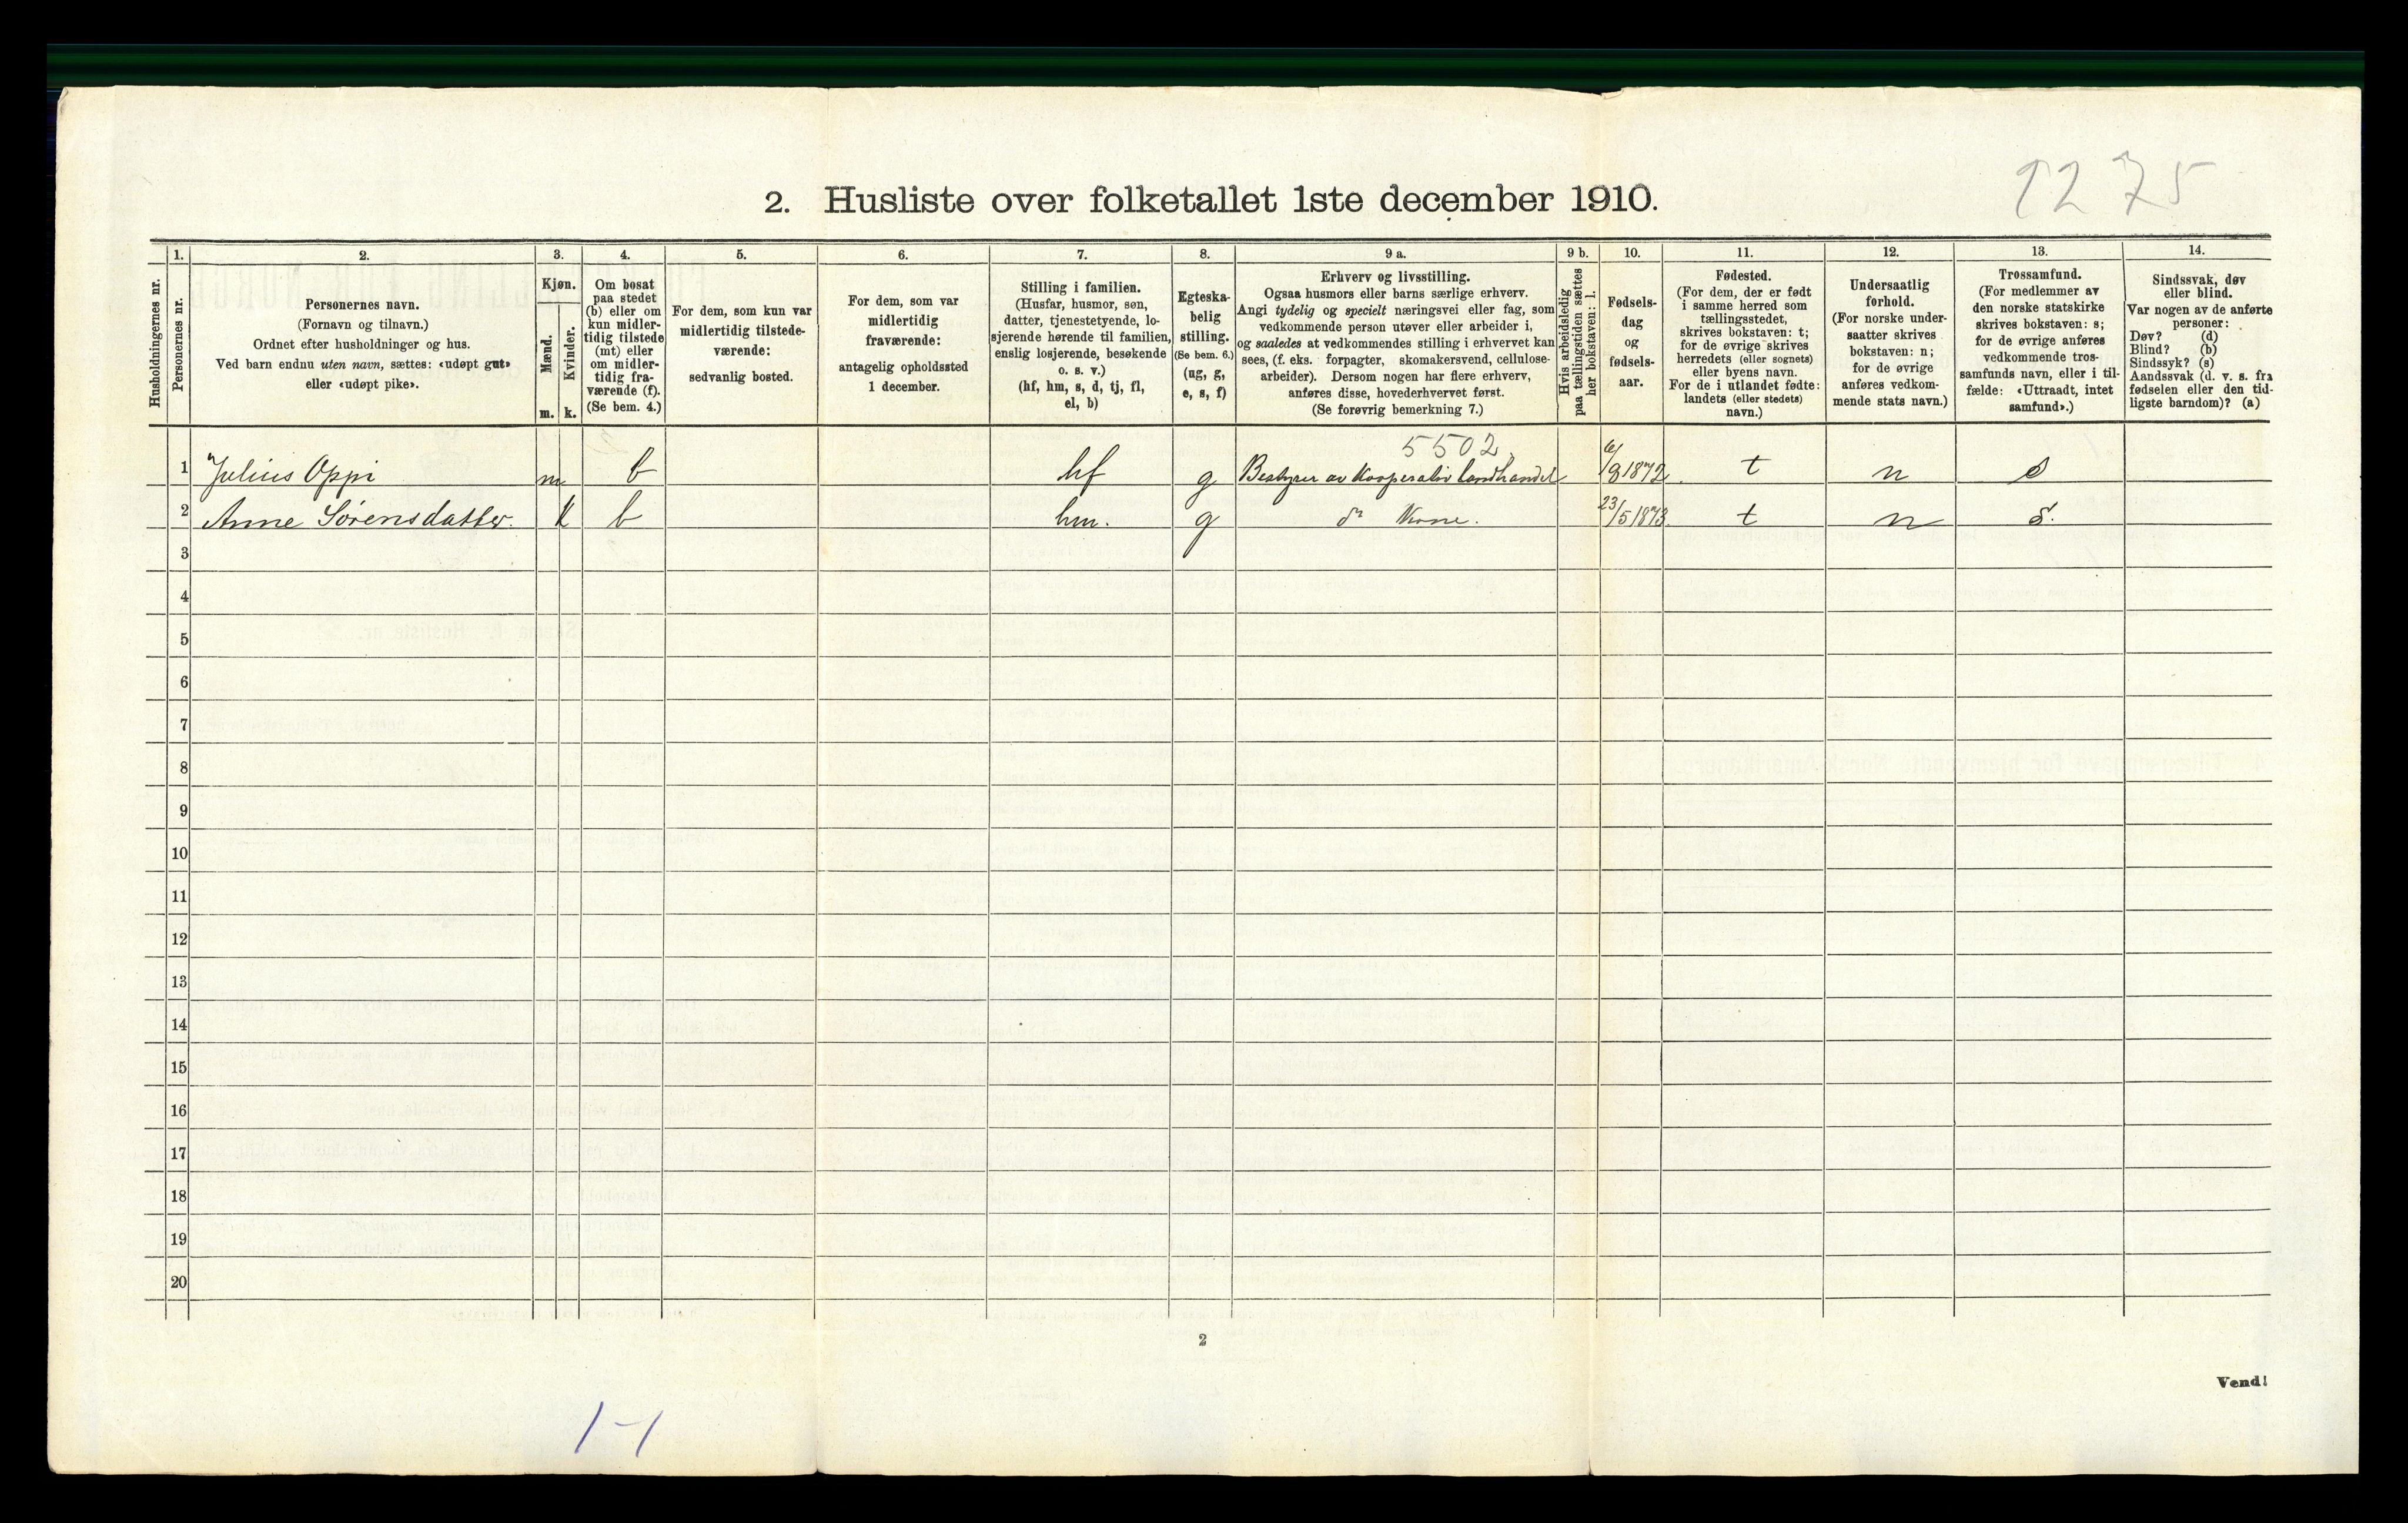 1275
2. Husliste over folketallet 1ste december 1910.
Husholdningernes nr.
1.
Personernes nr.
2.
Personernes navn.
(Fornavn og tilnavn.)
Ordnet efter husholdninger og hus.
Ved barn endnu uten navn, sættes: «udøpt gut»
eller «udøpt pike».
3.
Kjøn.
Mænd.
m.
Kvinder.
k.
4.
Om bosat
paa stedet
(b) eller om
kun midler-
tidig tilstede
(mt) eller
om midler-
tidig fra-
værende (f).
(Se bem. 4.)
5.
For dem, som kun var
midlertidig tilstede-
værende:
sedvanlig bosted.
6.
For dem, som var
midlertidig
fraværende:
antagelig opholdssted
1 december.
7.
Stilling i familien.
(Husfar, husmor, søn,
datter, tjenestetyende, lo-
sjerende hørende til familien,
enslig losjerende, besøkende
o. s. v.)
(hf, hm, s, d, tj, fl,
el, b)
8.
Egteska-
belig
stilling.
(Se bem. 6.)
(ug, g,
e, s, f)
9 a.
Erhverv og livsstilling.
Ogsaa husmors eller barns særlige erhverv.
Angi tydelig og specielt næringsvei eller fag, som
vedkommende person utøver eller arbeider i,
og saaledes at vedkommendes stilling i erhvervet kan
sees, (f. eks. forpagter, skomakersvend, cellulose-
arbeider). Dersom nogen har flere erhverv,
anføres disse, hovederhvervet først.
(Se forøvrig bemerkning 7.)
9 b.
Hvis arbeidsledig
paa tællingstiden sættes
her bokstaven: l.
10.
Fødsels-
dag
og
fødsels-
aar.
11.
Fødested.
(For dem, der er født
i samme herred som
tællingsstedet,
skrives bokstaven: t;
for de øvrige skrives
herredets (eller sognets)
eller byens navn.
For de i utlandet fødte:
landets (eller stedets)
navn.)
12.
Undersaatlig
forhold.
(For norske under-
saatter skrives
bokstaven: n;
for de øvrige
anføres vedkom-
mende stats navn.)
13.
Trossamfund.
(For medlemmer av
den norske statskirke
skrives bokstaven: s;
for de øvrige anføres
vedkommende tros-
samfunds navn, eller i til-
fælde: «Uttraadt, intet
samfund».)
14.
Sindssvak, døv
eller blind.
Var nogen av de anførte
personer:
Døv? (d)
Blind? (b)
Sindssyk? (s)
Aandssvak (d. v. s. fra
fødselen eller den tid-
ligste barndom)? (a)
5502
1 Julius Oppi m b hf g Bestyrer av Kooperativ landhandel 6/8 1872 t n s
2 Anne Sørensdatter. k b hm. g do Kone. 23/5 1873. t n s.
3
4
5
6
7
8
9
10
11
12
13
14
15
16
17
18
19
20
2
Vend!
1-1